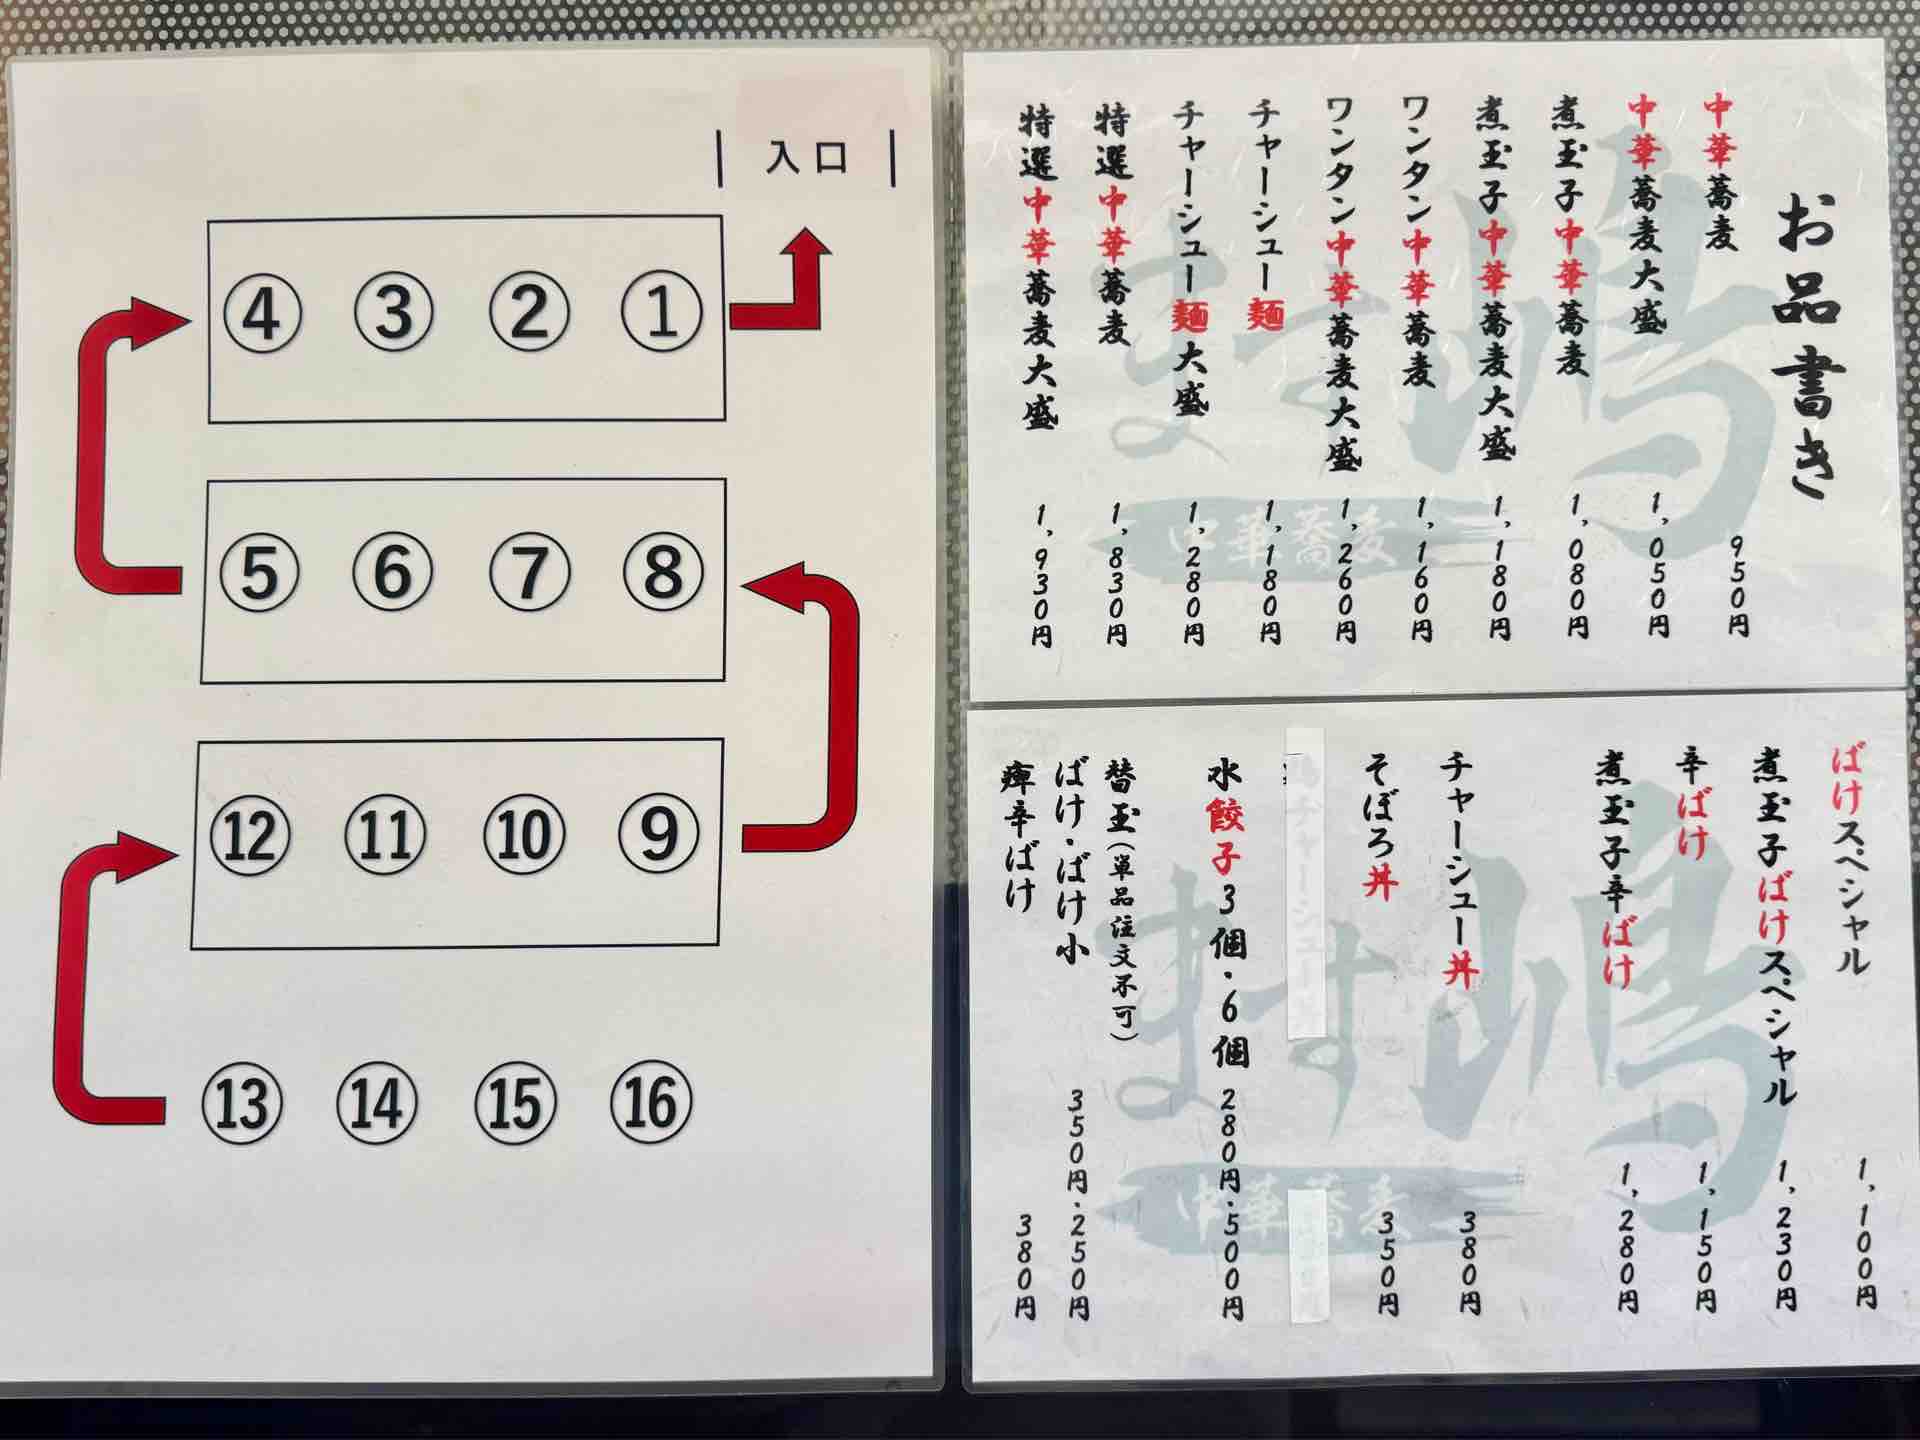 入口
④ ③ ② ①
⑤ ⑥ ⑦ ⑧
⑫ ⑪ ⑩ ⑨
⑬ ⑭ ⑮ ⑯
お品書き
中華蕎麦 950円
中華蕎麦大盛 1,050円
煮玉子中華蕎麦 1,080円
煮玉子中華蕎麦大盛 1,180円
ワンタン中華蕎麦 1,160円
ワンタン中華蕎麦大盛 1,260円
チャーシュー麺 1,180円
チャーシュー麺大盛 1,280円
特選中華蕎麦 1,830円
特選中華蕎麦大盛 1,930円
ます嶋
中華蕎麦
ばけスペシャル 1,100円
煮玉子ばけスペシャル 1,230円
辛ばけ 1,150円
煮玉子辛ばけ 1,280円
チャーシュー丼 380円
そぼろ丼 350円
チャーシュー
水餃子3個・6個 280円・500円
替玉(単品注文不可)
ばけ・ばけ小 350円・250円
痺辛ばけ 380円
ます嶋
中華蕎麦